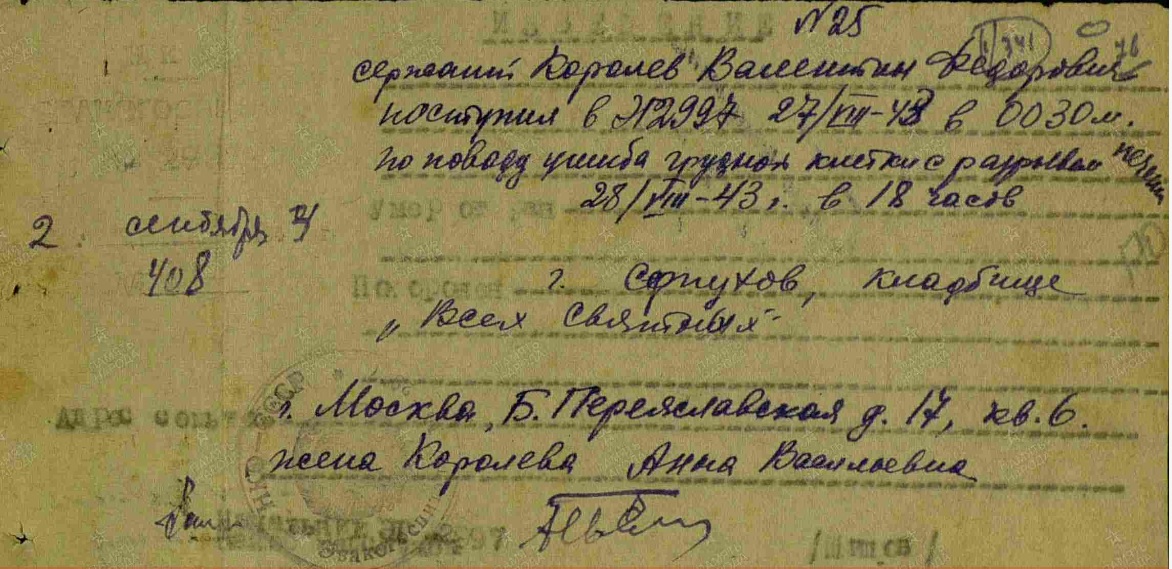 ИЗВЕЩЕНИЕ N 25
341
сержант Королев Валентин Федорович
поступил в N2997 27/VIII-43 в 0030м.
по поводу ушиба грудной клетки с разрывом печени
Умер от ран 28/VIII-43 г. в 18 часов
2 сентября
408
Похоронен г. Серпухов, кладбище
"Всех Святых"
Адрес г. Москва, Б. Переяславская д. 17, кв. 6.
жена Королева Анна Васильевна
Начальник 2997